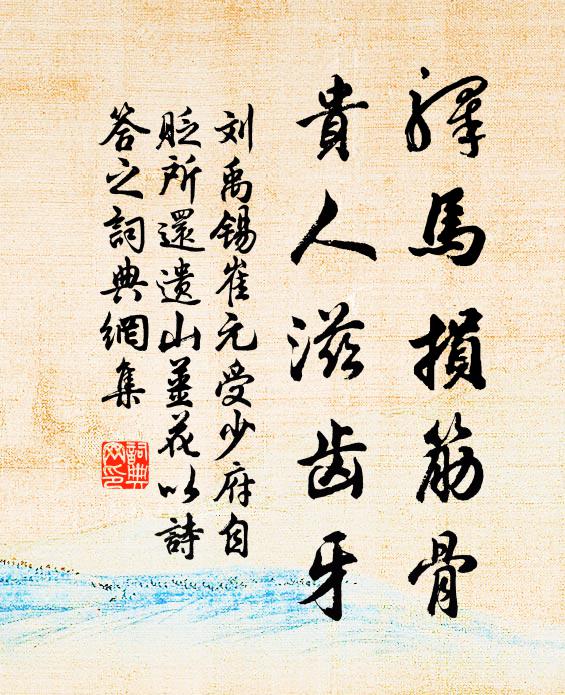 驛馬損筋骨
貴人滋齿牙
刘禹锡崔元受少府自
貶所還遺山薑花以詩
答之詞典網集
詞典网印